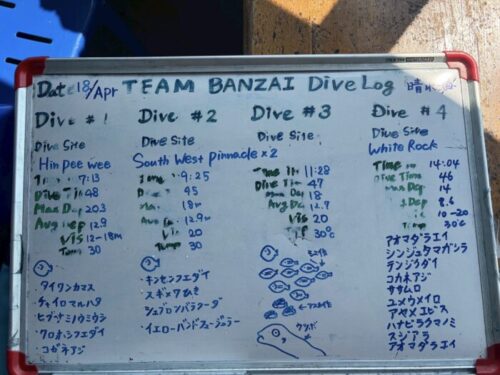 Date 18/Apr TEAM BANZAI Dive Log
Dive #1
Dive Site
Hin pee wee
Time In 7:13
Dive Time 48
Max Dep 20.3
Avg Dep 12.9
Vis 12-18m
Temp 30
・タイワンカマス
・チャイロマルハタ
・クロホシフエダイ
コガネアジ
Dive #2
Dive Site
South West pinnacle x2
Time In 9:25
Dive 45
Max 18m
Avg 12.9m
Vis 20
Temp 30
・キンセンフエダイ
・シェブロンバラクーダ
・イエローバンドフュージラー
Dive #3
Dive Site
Time In 11:28
Dive Time 47
Max Dep 18
Avg Dep 12.7
Vis 20
30℃
ウツボ
Dive #4
Dive Site
White Rock
Time In 14:04
Dive Time 46
Max Dep 14
Dep 8.6
Vis 10-20
Temp 30℃
アオマダラエイ
シンジュタマガシラ
テンジクダイ
コガネアジ
ササムロ
ユメウメイロ
アヤメエビス
ハナビラクマノミ
スジアラ
アオマダラエイ